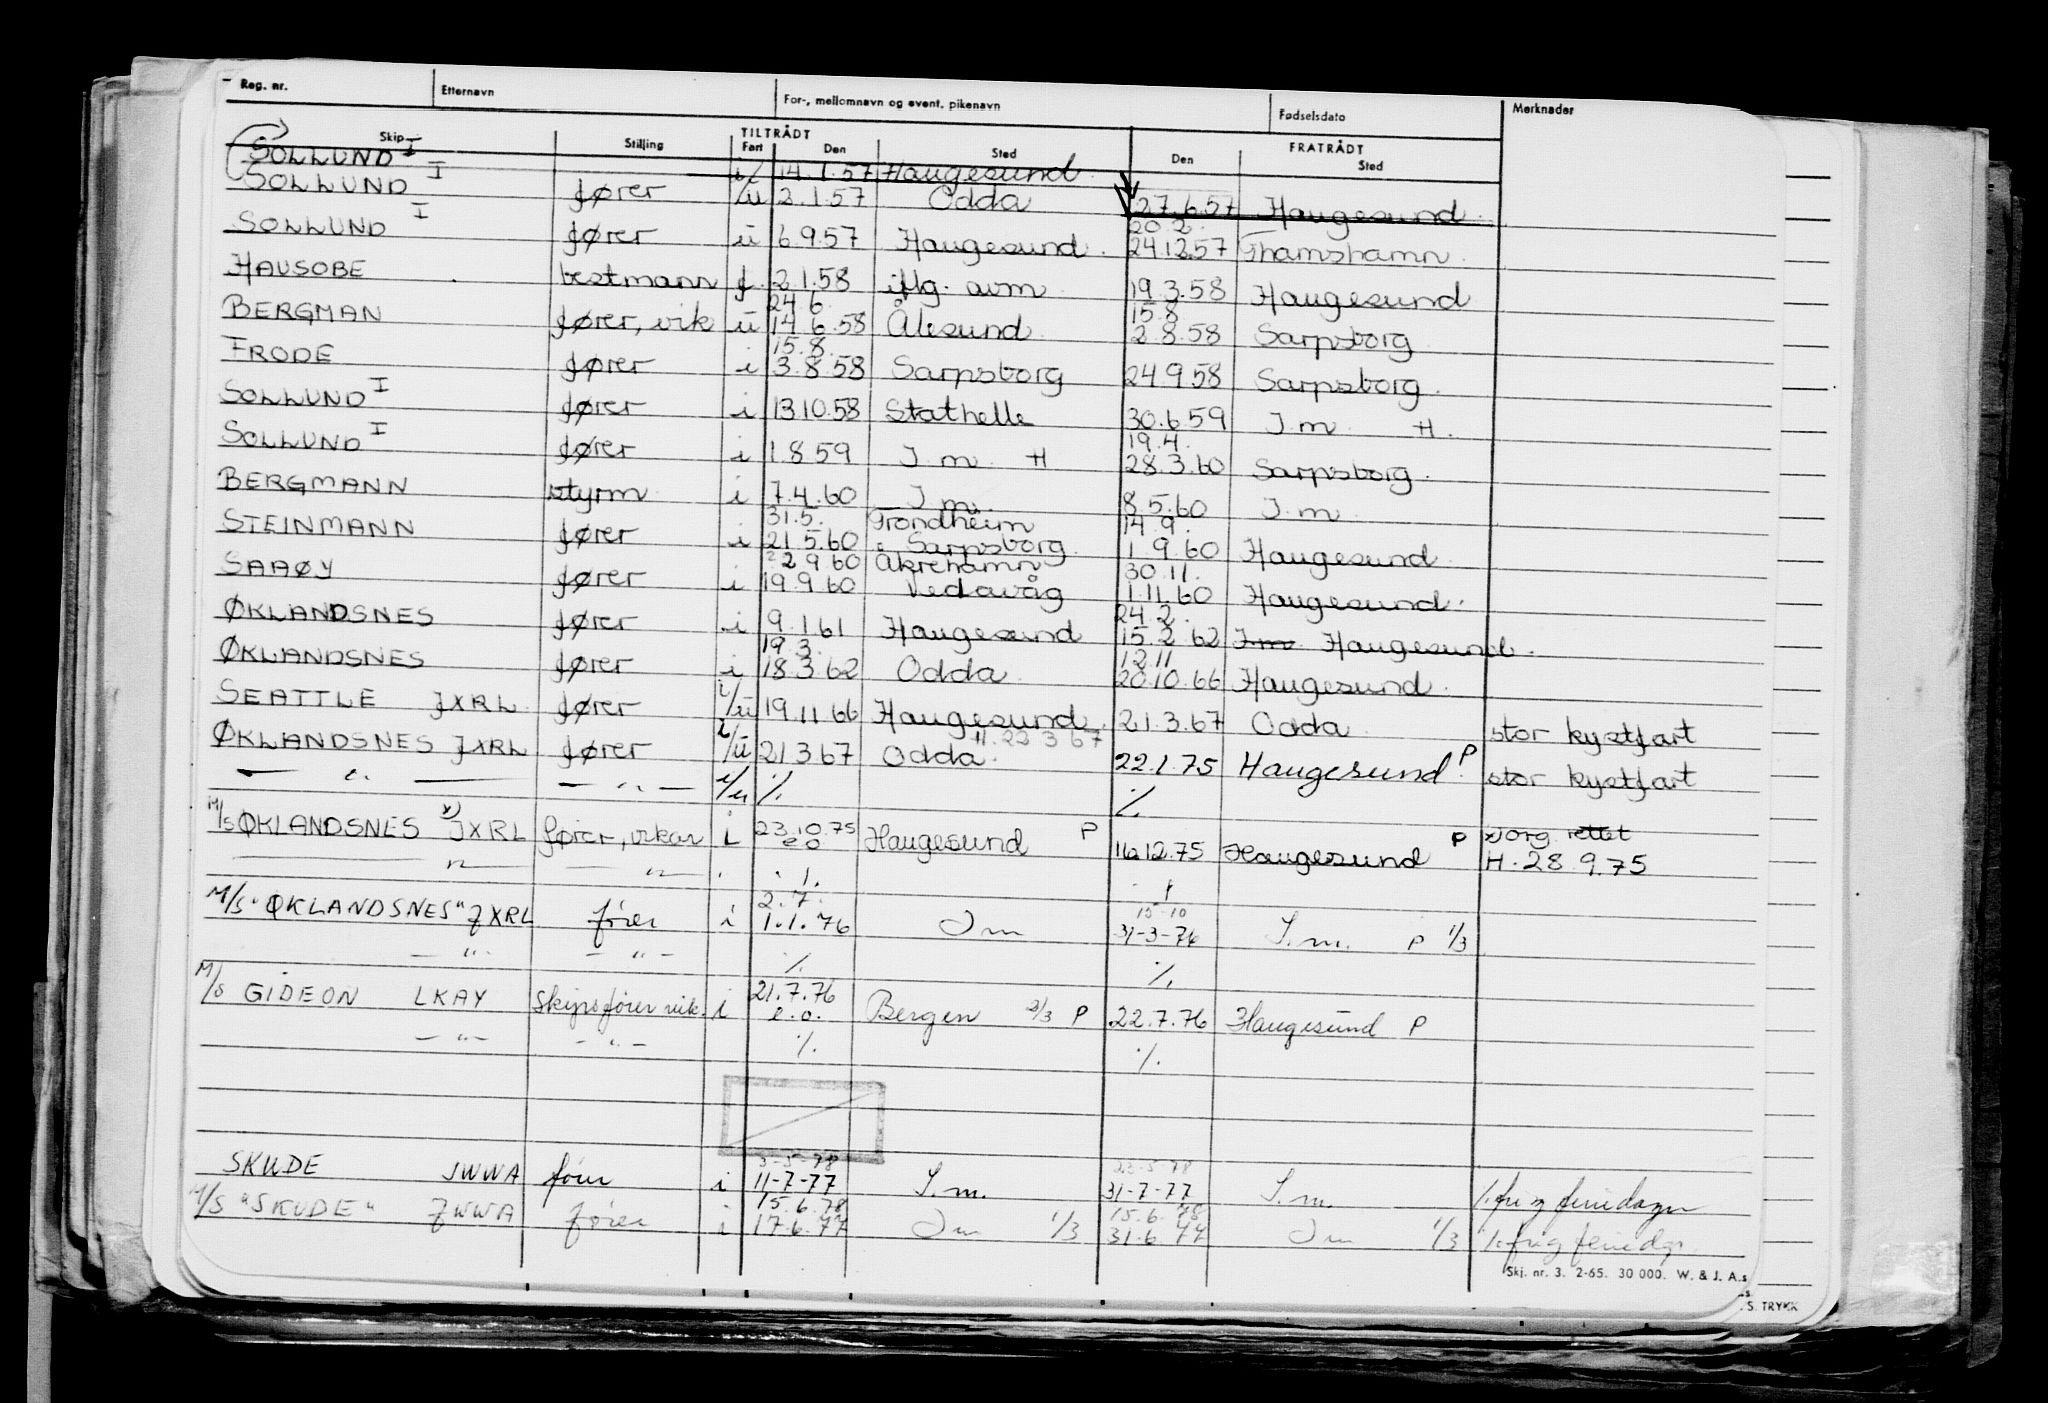 Reg. nr. Etternavn For-, mellomnavn og event. pikenavn Fødselsdato Merknader
TILTRÅDT FRATRÅDT
Skip Stilling Fart Den Sted Den Sted
SOLLUND I i/ 14.1.57 Haugesund
SOLLUND I fører /u 2.1.57 Odda 27.6.57 Haugesund
20.2.
SOLLUND I fører u 6.9.57 Haugesund 24.12.57 Thamshamn
HAUSOBE bestmann f 2.1.58 iflg. avm 19.3.58 Haugesund
24.6. 15.8
BERGMAN fører, vik u 14.6.58 Ålesund 2.8.58 Sarpsborg
15.8.
FRODE fører i 3.8.58 Sarpsborg 24.9.58 Sarpsborg
SOLLUND I fører i 13.10.58 Stathelle 30.6.59 I.m. H.
19.4.
SOLLUND I fører i 1.8.59 I.m. H 28.3.60 Sarpsborg
BERGMANN styrm i 7.4.60 I.m. 8.5.60 I.m.
31.5. Trondheim 14.9.
STEINMANN fører i 21.5.60 Sarpsborg 1.9.60 Haugesund
22.9.60 Åkrehamn 30.11.
SAAØY fører i 19.9.60 Vedavåg 1.11.60 Haugesund
24.2.
ØKLANDSNES fører i 9.1.61 Haugesund 15.2.62 I.m. Haugesund
19.3. 12.11
ØKLANDSNES fører i 18.3.62 Odda 20.10.66 Haugesund
SEATTLE JXRL fører i/u 19.11.66 Haugesund 21.3.67 Odda stor kystfart
H. 22 3 67
ØKLANDSNES JXRL fører i/u 21.3.67 Odda 22.1.75 Haugesund P. stor kystfart
— " — — " — i/u ⁒ ⁒
M/S ØKLANDSNES x) JXRL fører, vikar i 23.10.75 Haugesund P 16.12.75 Haugesund P x) org. rettet
e o H. 28.9.75
— " — — " — ⁒
2.7. 15-10
M/S "ØKLANDSNES" JXRL fører i 1.1.76 I m 31-3-76 I.m. P 1/3
— " — — " — ⁒ ⁒
M/S GIDEON LKAY Skipsfører vik. i 21.7.76 Bergen 2/3 P 22.7.76 Haugesund P
e.o.
— " — — " — ⁒ ⁒
3-5-78 23-5-78
SKUDE JWWA fører i 11-7-77 I.m. 31-7-77 I.m. ⁒ fri g feriedager
15.6.78 15.6.78
M/S "SKUDE" JWWA fører i 17.6.77 I m 1/3 31.6.77 I m 1/3 ⁒ fri g feriedgr.
Skj. nr. 3. 2-65. 30 000. W. & J. A.s
. S. TRYKK